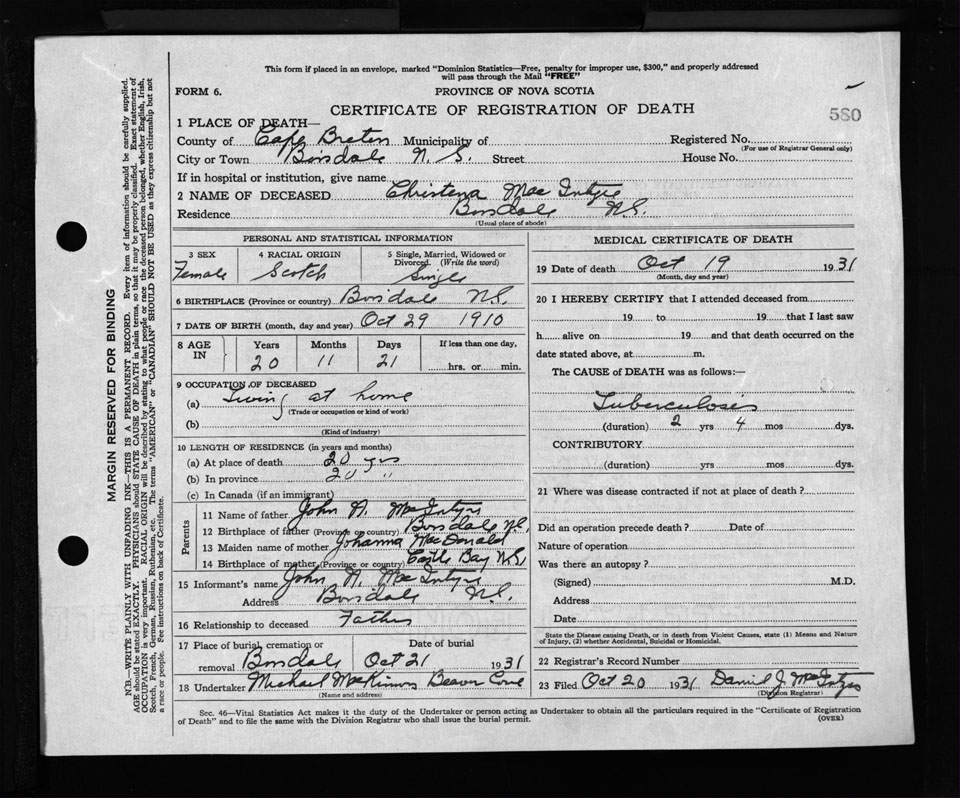 This form if placed in an envelope, marked "Dominion Statistics—Free, penalty for improper use, $300," and properly addressed
will pass through the Mail "FREE"
FORM 6. PROVINCE OF NOVA SCOTIA
CERTIFICATE OF REGISTRATION OF DEATH
580
1 PLACE OF DEATH—
County of Cape Breton Municipality of Registered No.
(For use of Registrar General only)
City or Town Boisdale N. S. Street House No.
If in hospital or institution, give name
2 NAME OF DECEASED Christena MacIntyre
Residence Boisdale N.S.
(Usual place of abode)
PERSONAL AND STATISTICAL INFORMATION
3 SEX 4 RACIAL ORIGIN 5 Single, Married, Widowed or
Divorced. (Write the word)
Female Scotch Single
6 BIRTHPLACE (Province or country) Boisdale N.S.
7 DATE OF BIRTH (month, day and year) Oct 29 1910
8 AGE IN Years Months Days If less than one day,
20 11 21 hrs. or min.
9 OCCUPATION OF DECEASED
(a) Living at home
(Trade or occupation or kind of work)
(b)
(Kind of industry)
10 LENGTH OF RESIDENCE (in years and months)
(a) At place of death 20 yrs
(b) In province 20 "
(c) In Canada (if an immigrant)
Parents
11 Name of father John N. MacIntyre
12 Birthplace of father (Province or country) Boisdale N.S.
13 Maiden name of mother Johanna MacDonald
14 Birthplace of mother (Province or country) Castle Bay N.S.
15 Informant's name John N. MacIntyre
Address Boisdale N.S.
16 Relationship to deceased Father
17 Place of burial, cremation or Date of burial
removal Boisdale Oct 21 1931
18 Undertaker Michael MacKinnon Beaver Cove
(Name and address)
MEDICAL CERTIFICATE OF DEATH
19 Date of death Oct 19 1931
(Month, day and year)
20 I HEREBY CERTIFY that I attended deceased from
19 to 19 that I last saw
h alive on 19 and that death occurred on the
date stated above, at m.
The CAUSE of DEATH was as follows:—
Tuberculoses
(duration) 2 yrs 4 mos dys.
CONTRIBUTORY
(duration) yrs mos dys.
21 Where was disease contracted if not at place of death?
Did an operation precede death? Date of
Nature of operation
Was there an autopsy?
(Signed) M.D.
Address
Date
State the Disease causing Death, or in death from Violent Causes, state (1) Means and Nature
of Injury, (2) whether Accidental, Suicidal or Homicidal.
22 Registrar's Record Number
23 Filed Oct 20 1931 Daniel J. MacIntyre
(Division Registrar)
Sec. 46—Vital Statistics Act makes it the duty of the Undertaker or person acting as Undertaker to obtain all the particulars required in the "Certificate of Registration
of Death" and to file the same with the Division Registrar who shall issue the burial permit. (OVER)
MARGIN RESERVED FOR BINDING
N.B.—WRITE PLAINLY WITH UNFADING INK—THIS IS A PERMANENT RECORD. Every item of information should be carefully supplied.
AGE should be stated EXACTLY. PHYSICIANS should STATE CAUSE OF DEATH in plain terms, so that it may be properly classified. Exact statement of
OCCUPATION is very important. RACIAL ORIGIN will be described by stating to what people or race the deceased person belonged, whether English, Irish,
Scotch, French, German, Russian, Ruthenian, etc. The terms "AMERICAN" or "CANADIAN" SHOULD NOT BE USED as they express citizenship but not
a race or people. See instructions on back of Certificate.